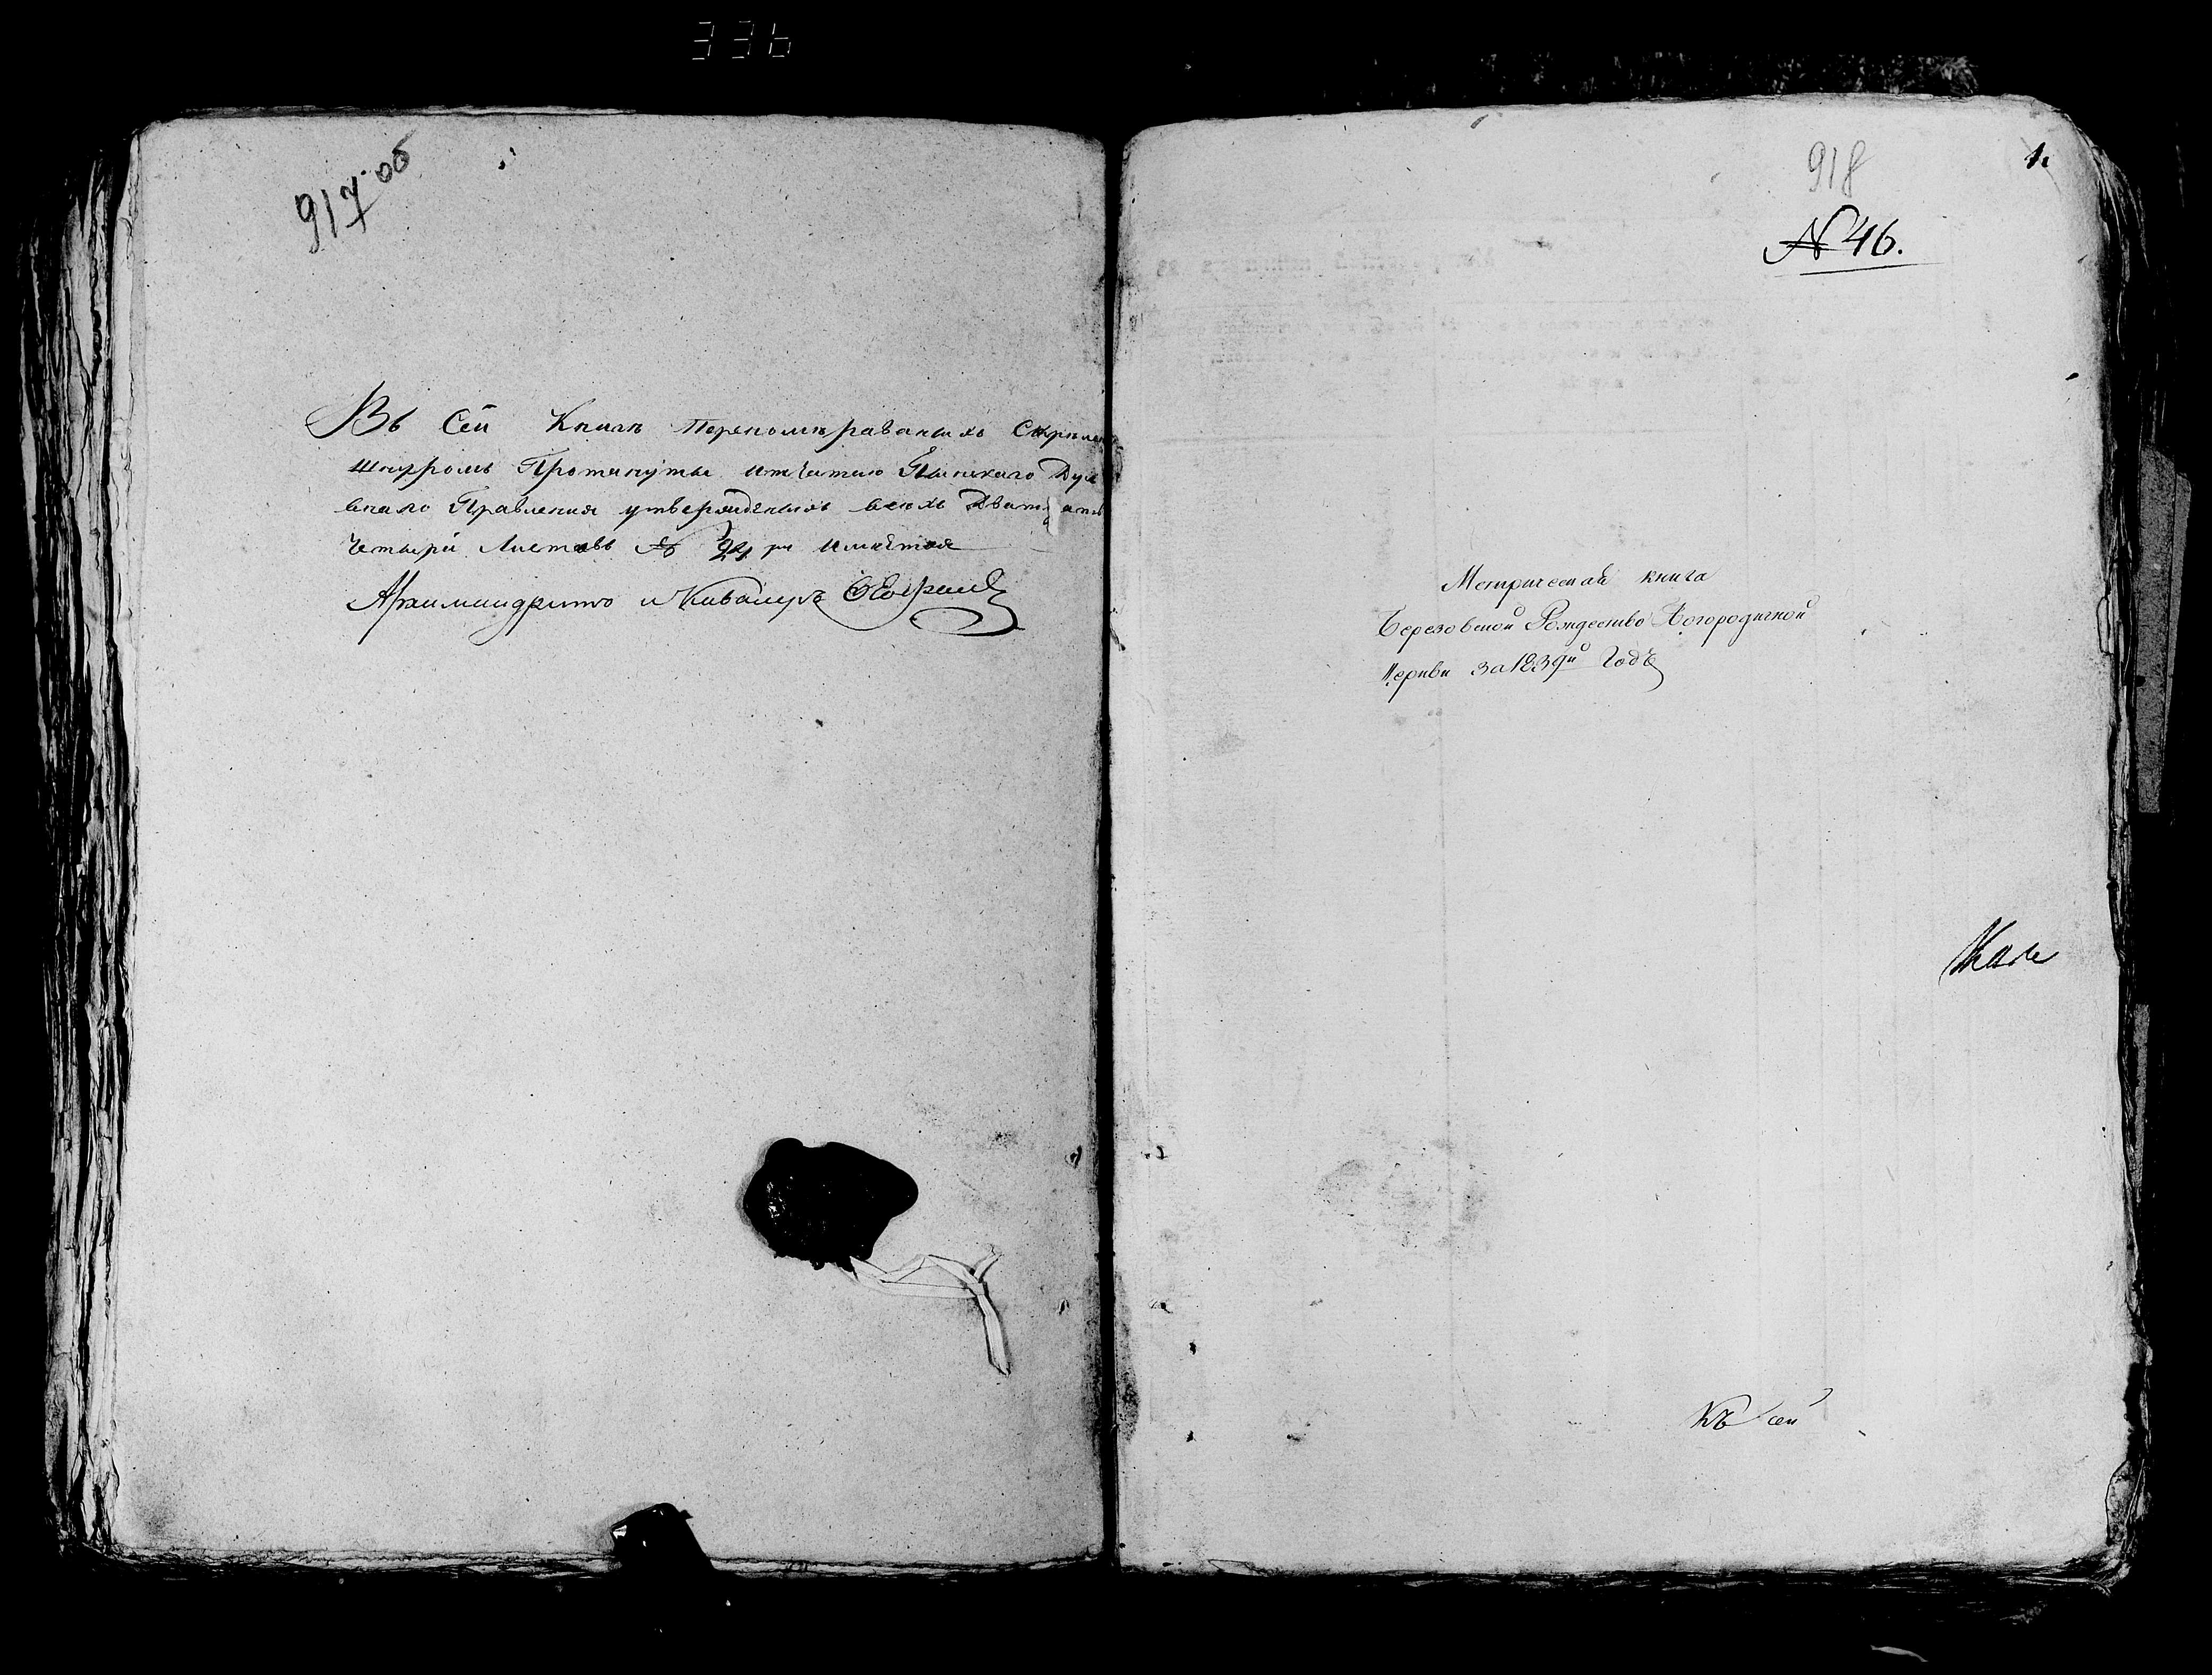 336
917 об
Въ Сей Книгѣ Переномѣраваныхъ Скрѣплен
Шнуромъ Протянуты и печатью Пинскаго Дух
внаго Правления утвержденныхъ всехъ Дватцать
Четыри Листовъ № 24 имѣется
Архимандритъ и Кавалеръ
918
1.
№ 46.
Метрическая книга
Березовской Рождество Богородичной
Церкви за 1839й Годъ
Къ сей